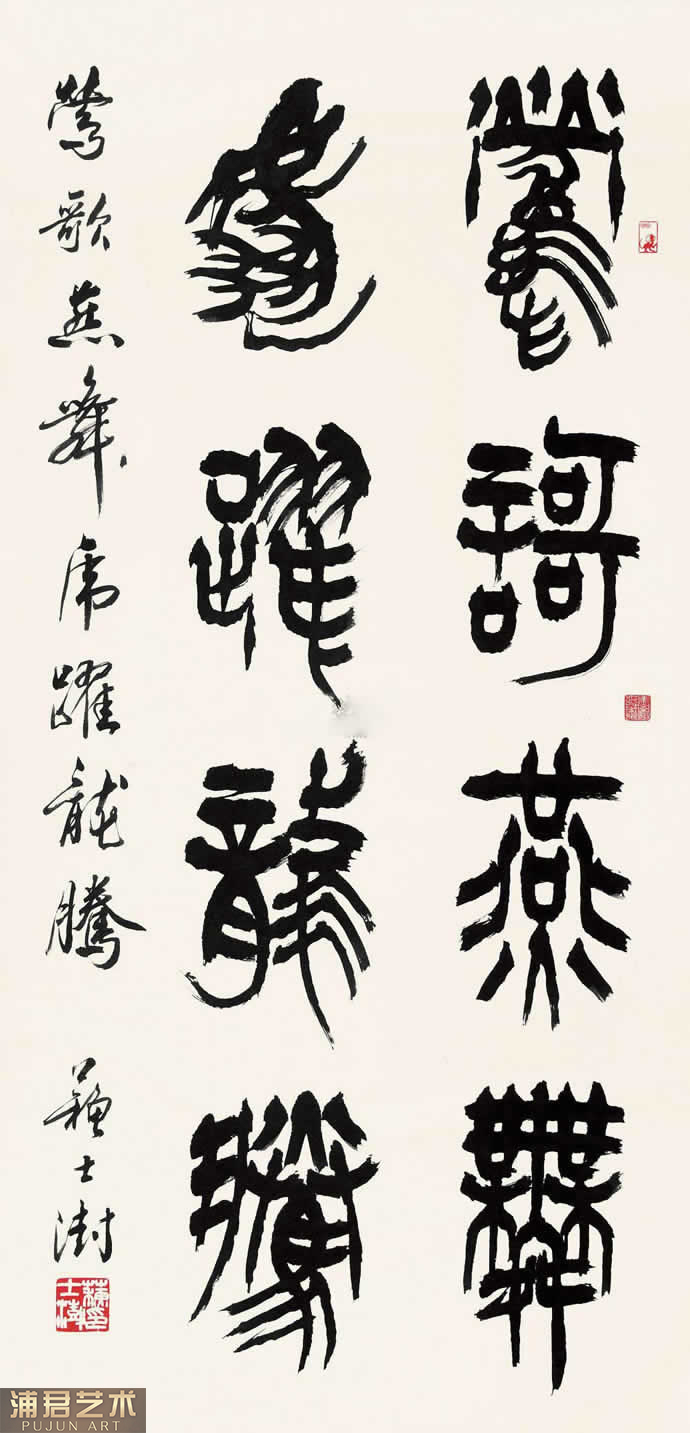 鶯謌燕舞
虎躍龍騰
鶯歌燕舞虎躍龍騰
蘇士澍
浦君艺术
PUJUN ART